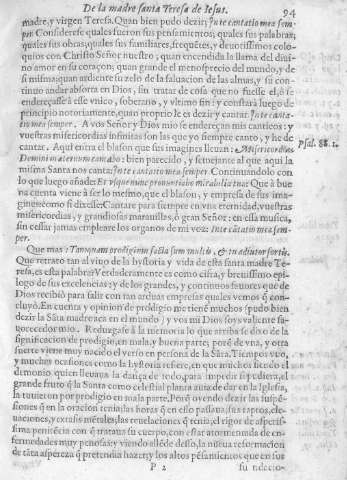 De la madre santa Teresa de Iesus.
94
madre, y virgen Teresa. Quan bien pudo dezir: In te cantatio mea sem
per. Considerese quales fueron sus pensamientos; quales sus palabras;
quales sus obras, quales sus familiares, frequētes, y deuotissimos colo-
quios con Christo Señor nuestro, quan encendida la llama del diui
no amor en su coraçon; quan grande el menosprecio del mundo, y de
si misma; quan ardiente su zelo de la saluacion de las almas, y su con
tinuo andar absorta en Dios, sin tratar de cosa que no fuesse el, ò se
endereçasse à esse vnico, soberano, y vltimo fin: y constará luego de
principio notoriamente, quan proprio le es dezir y cantar In te canta-
tio mea semper. A vos Señor y Dios mio se endereçan mis canticos: y
vuestras misericordias infinitas son las que yo siempre canto, y he de
cantar. Aqui entra el blason que sus imagines lleuan: Misericordias
Psal. 88. 1.
Domini in æternum cantabo: bien parecido, y semejante al que aqui la
misma Santa nos canta: In te cantatio mea semper. Continuandolo con
lo que luego añade: Et usque nunc pronuntiabo mirabilia tua: Que à bue
na cuenta viene à ser lo mesmo, que el blason, y empresa de sus ima-
gines: como si dixesse: Cantare para siempre en vna eternidad, vuestras
misericordias, y grandiosas marauillas, ò gran Señor: en essa musica,
sin cessar jamas empleare los organos de mi voz: In te cātatio mea sem-
per.
Que mas: Tamquam prodigium factus sum multis, & tu adiutor fortis.
Que retrato tan al viuo de la hystoria y vida de esta santa madre Te
resa, es esta palabra! Verdaderamente es como cifra, y breuissimo epi-
logo de sus excelencias; y de los grandes, y continuos fauores que de
Dios recibiò para salir con tan arduas empresas quales vemos q̃ con-
cluyò. En cuenta y opinion de prodigio me tiene muchos (pudo bien
dezir la Sāta madre) acà en el mundo, y vos mi Dios soys valiente fa-
uorecedor mio. Redurgase à la memoria lo que arriba se dixo de la
significacion de prodigio, en mala, y buena parte; porq̃ de vna, y otra
suerte viene muy nacido el verso en persona de la Sāta. Tiempos vuo,
y muchas ocasiones como la hystoria refiere, en que muchos siendo el
demonio quien lleuaua la dança de todo, para impedir si pudiera, el
grande fruto q̃ la Santa como celestial planta auia de dar en la Iglesia,
la tuuieron por prodigio en mala parte. Porq̃ oyendo dezir las suspē-
siones q̃ en la oracion tenia; las horas q̃ en ello passaua, sus raptos, ele-
uaciones, y extasis mētales; las reuelaciones q̃ tenia, el rigor de asperis-
sima penitēcia con q̃ trataua su cuerpo, con estar atormentada de en-
fermedades muy penosas; y viendo allēde desso, la nueua reformacion
de tāta aspereza q̃ pretendia hazer; y los altos pēsamiētos que en sus
P 2
fundacio-